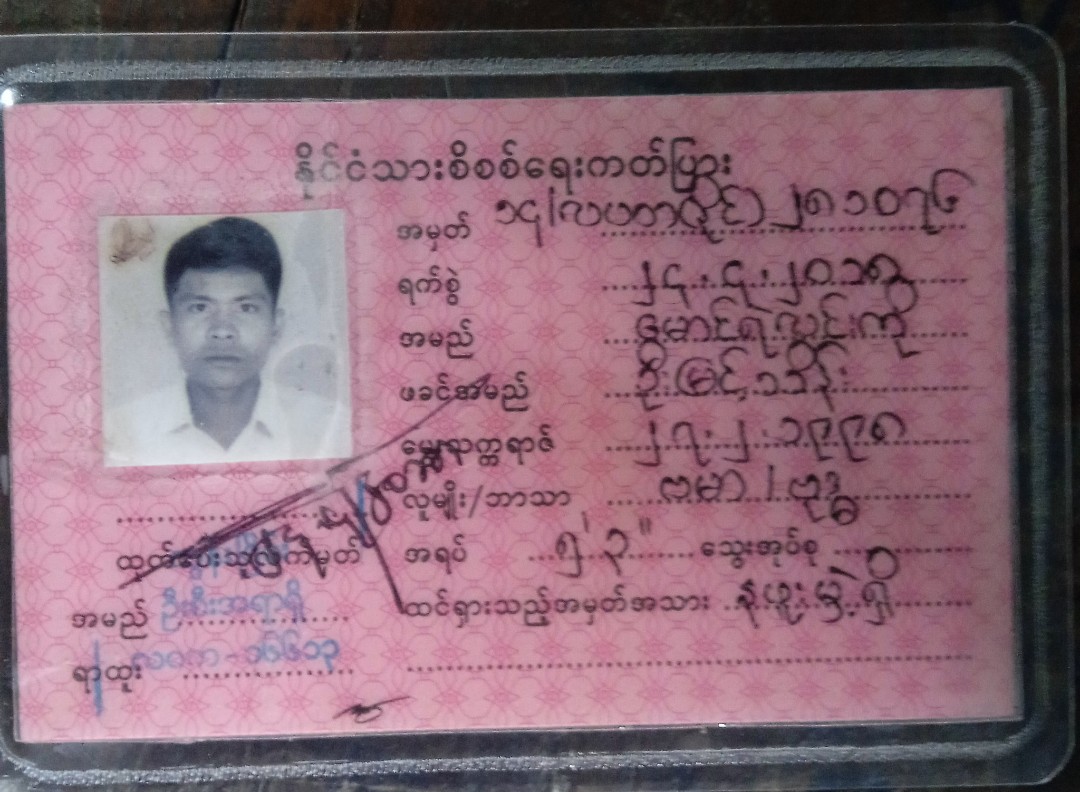 နိုင်ငံသားစိစစ်ရေးကတ်ပြား
အမှတ် ၁၄/လပတ(နိုင်) ၂၈၁၀၇၆
ရက်စွဲ ၂၄.၄.၂၀၁၈
အမည် မောင်ရဲလွင်ကို
ဖခင်အမည် ဦးမြင့်သိန်း
မွေးသက္ကရာဇ် ၂၇.၂.၁၉၉၈
လူမျိုး/ဘာသာ ဗမာ/ဗုဒ္ဓ
အရပ် ၅' ၃" သွေးအုပ်စု O
ထင်ရှားသည့်အမှတ်အသား နဖူးမှဲ့ရှိ
ထုတ်ပေးသူလက်မှတ်
အမည်
ရာထူး လဝက-၁၆၆၁၃